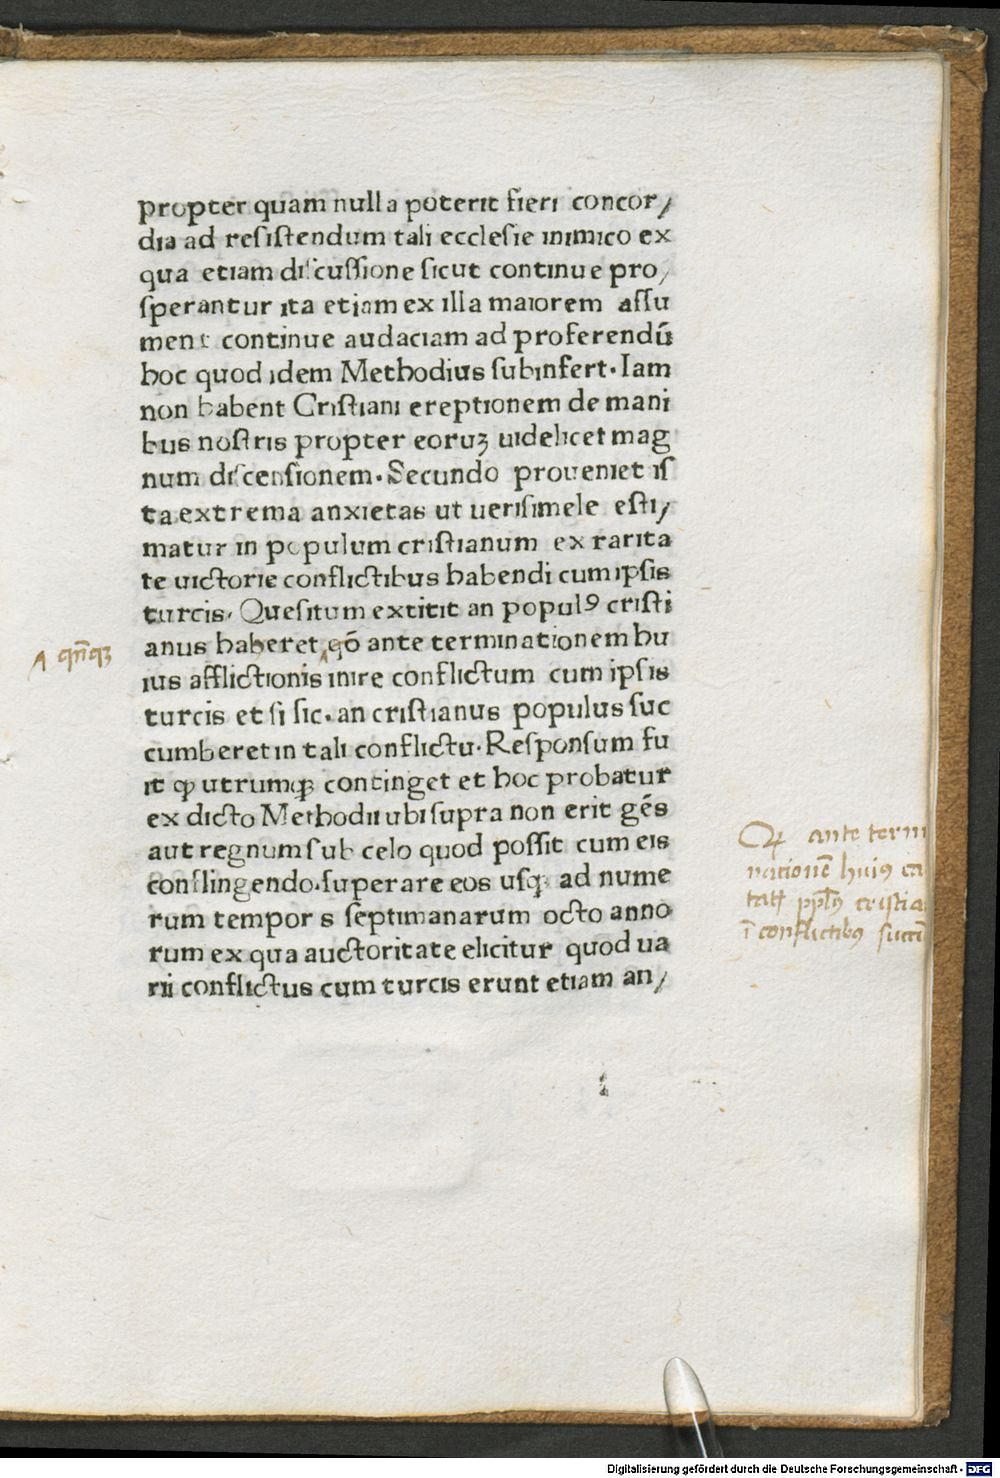 propter quam nulla poterit fieri concor/
dia ad resistendum tali ecclesie inimico ex
qua etiam discussione sicut continue pro/
sperantur ita etiam ex illa maiorem assu
ment continue audaciam ad proferendū
hoc quod idem Methodius subinfert. Iam
non habent Cristiani ereptionem de mani
bus nostris propter eoruꝫ uidelicet mag
num discensionem. Secundo proueniet is
ta extrema anxietas ut uerisimele esti/
matur in populum cristianum ex rarita
te uictorie conflictibus habendi cum ipsis
turcis. Quesitum extitit an populꝰ cristi
anus haberet qō ante terminationem hu
ius afflictionis inire conflictum cum ipsis
turcis et si sic. an cristianus populus suc
cumberet in tali conflictu. Responsum fu
it ꝙ utrumqꝫ continget et hoc probatur
ex dicto Methodii ubi supra non erit gēs
aut regnum sub celo quod possit cum eis
conflingendo. superare eos usqꝫ ad nume
rum tempor s septimanarum octo anno
rum ex qua auctoritate elicitur quod ua
rii conflictus cum turcis erunt etiam an/
ante termi
nationē huiꝰ ca
cristia
ī conflictibꝰ
Digitalisierung gefördert durch die Deutsche Forschungsgemeinschaft - DFG